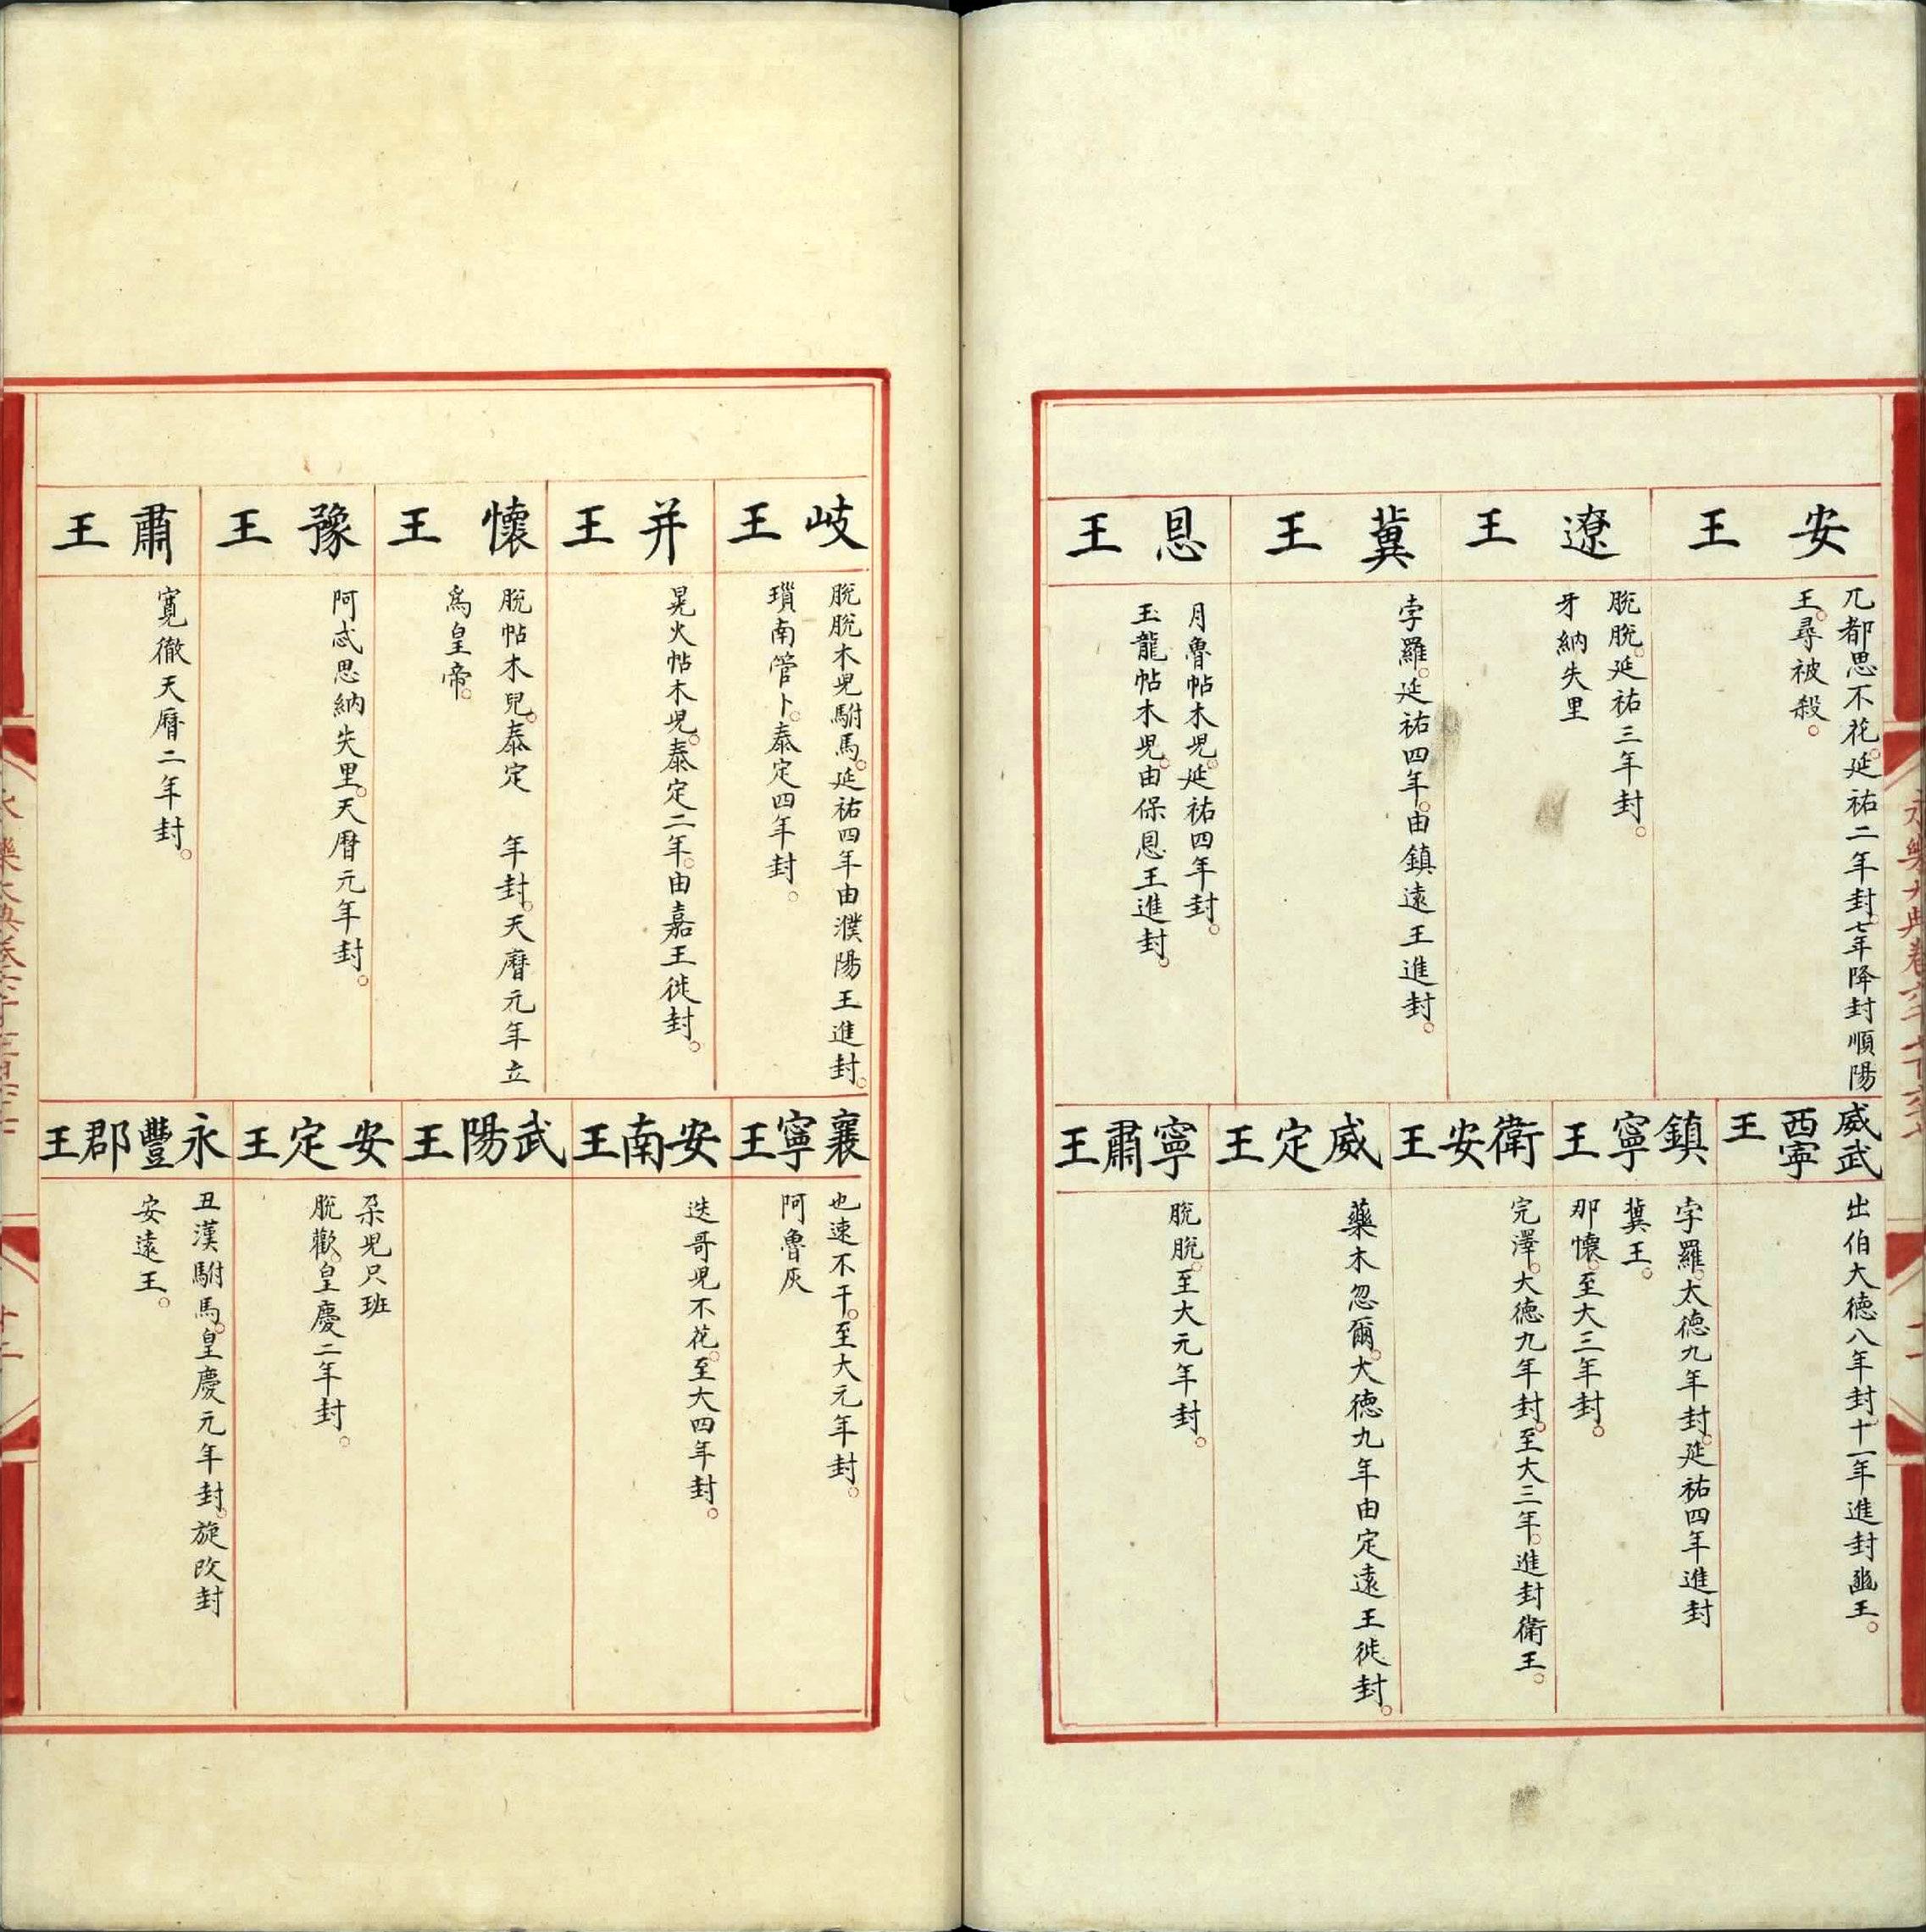 永樂大典卷六千七百六十七
安王
兀都思不花延祐二年封七年降封順陽
王尋被殺
遼王
脫脫延祐三年封
牙納失里
冀王
孛羅延祐四年由鎮遠王進封
恩王
月魯帖木兒延祐四年封
玉龍帖木兒由保恩王進封
威武
西寧
王
出伯大德八年封十一年進封豳王
鎮寧王
孛羅太德九年封延祐四年進封
冀王
那懷至大三年封
衛安王
完澤大德九年封至大三年進封衛王
威定王
藥木忽爾大德九年由定遠王徙封
寧肅王
脫脫至大元年封
岐王
脫脫木兒駙馬延祐四年由濮陽王進封
瑣南管卜泰定四年封
并王
晃火帖木兒泰定二年由嘉王徙封
懷王
脫帖木兒泰定　年封天曆元年立
為皇帝
豫王
阿忒思納失里天曆元年封
肅王
寬徹天曆二年封
襄寧王
也速不干至大元年封
阿魯灰
安南王
迭哥兒不花至大四年封
武陽王
安定王
朶兒只班
脫歡皇慶二年封
永豐郡王
丑漢駙馬皇慶元年封旋改封
安遠王